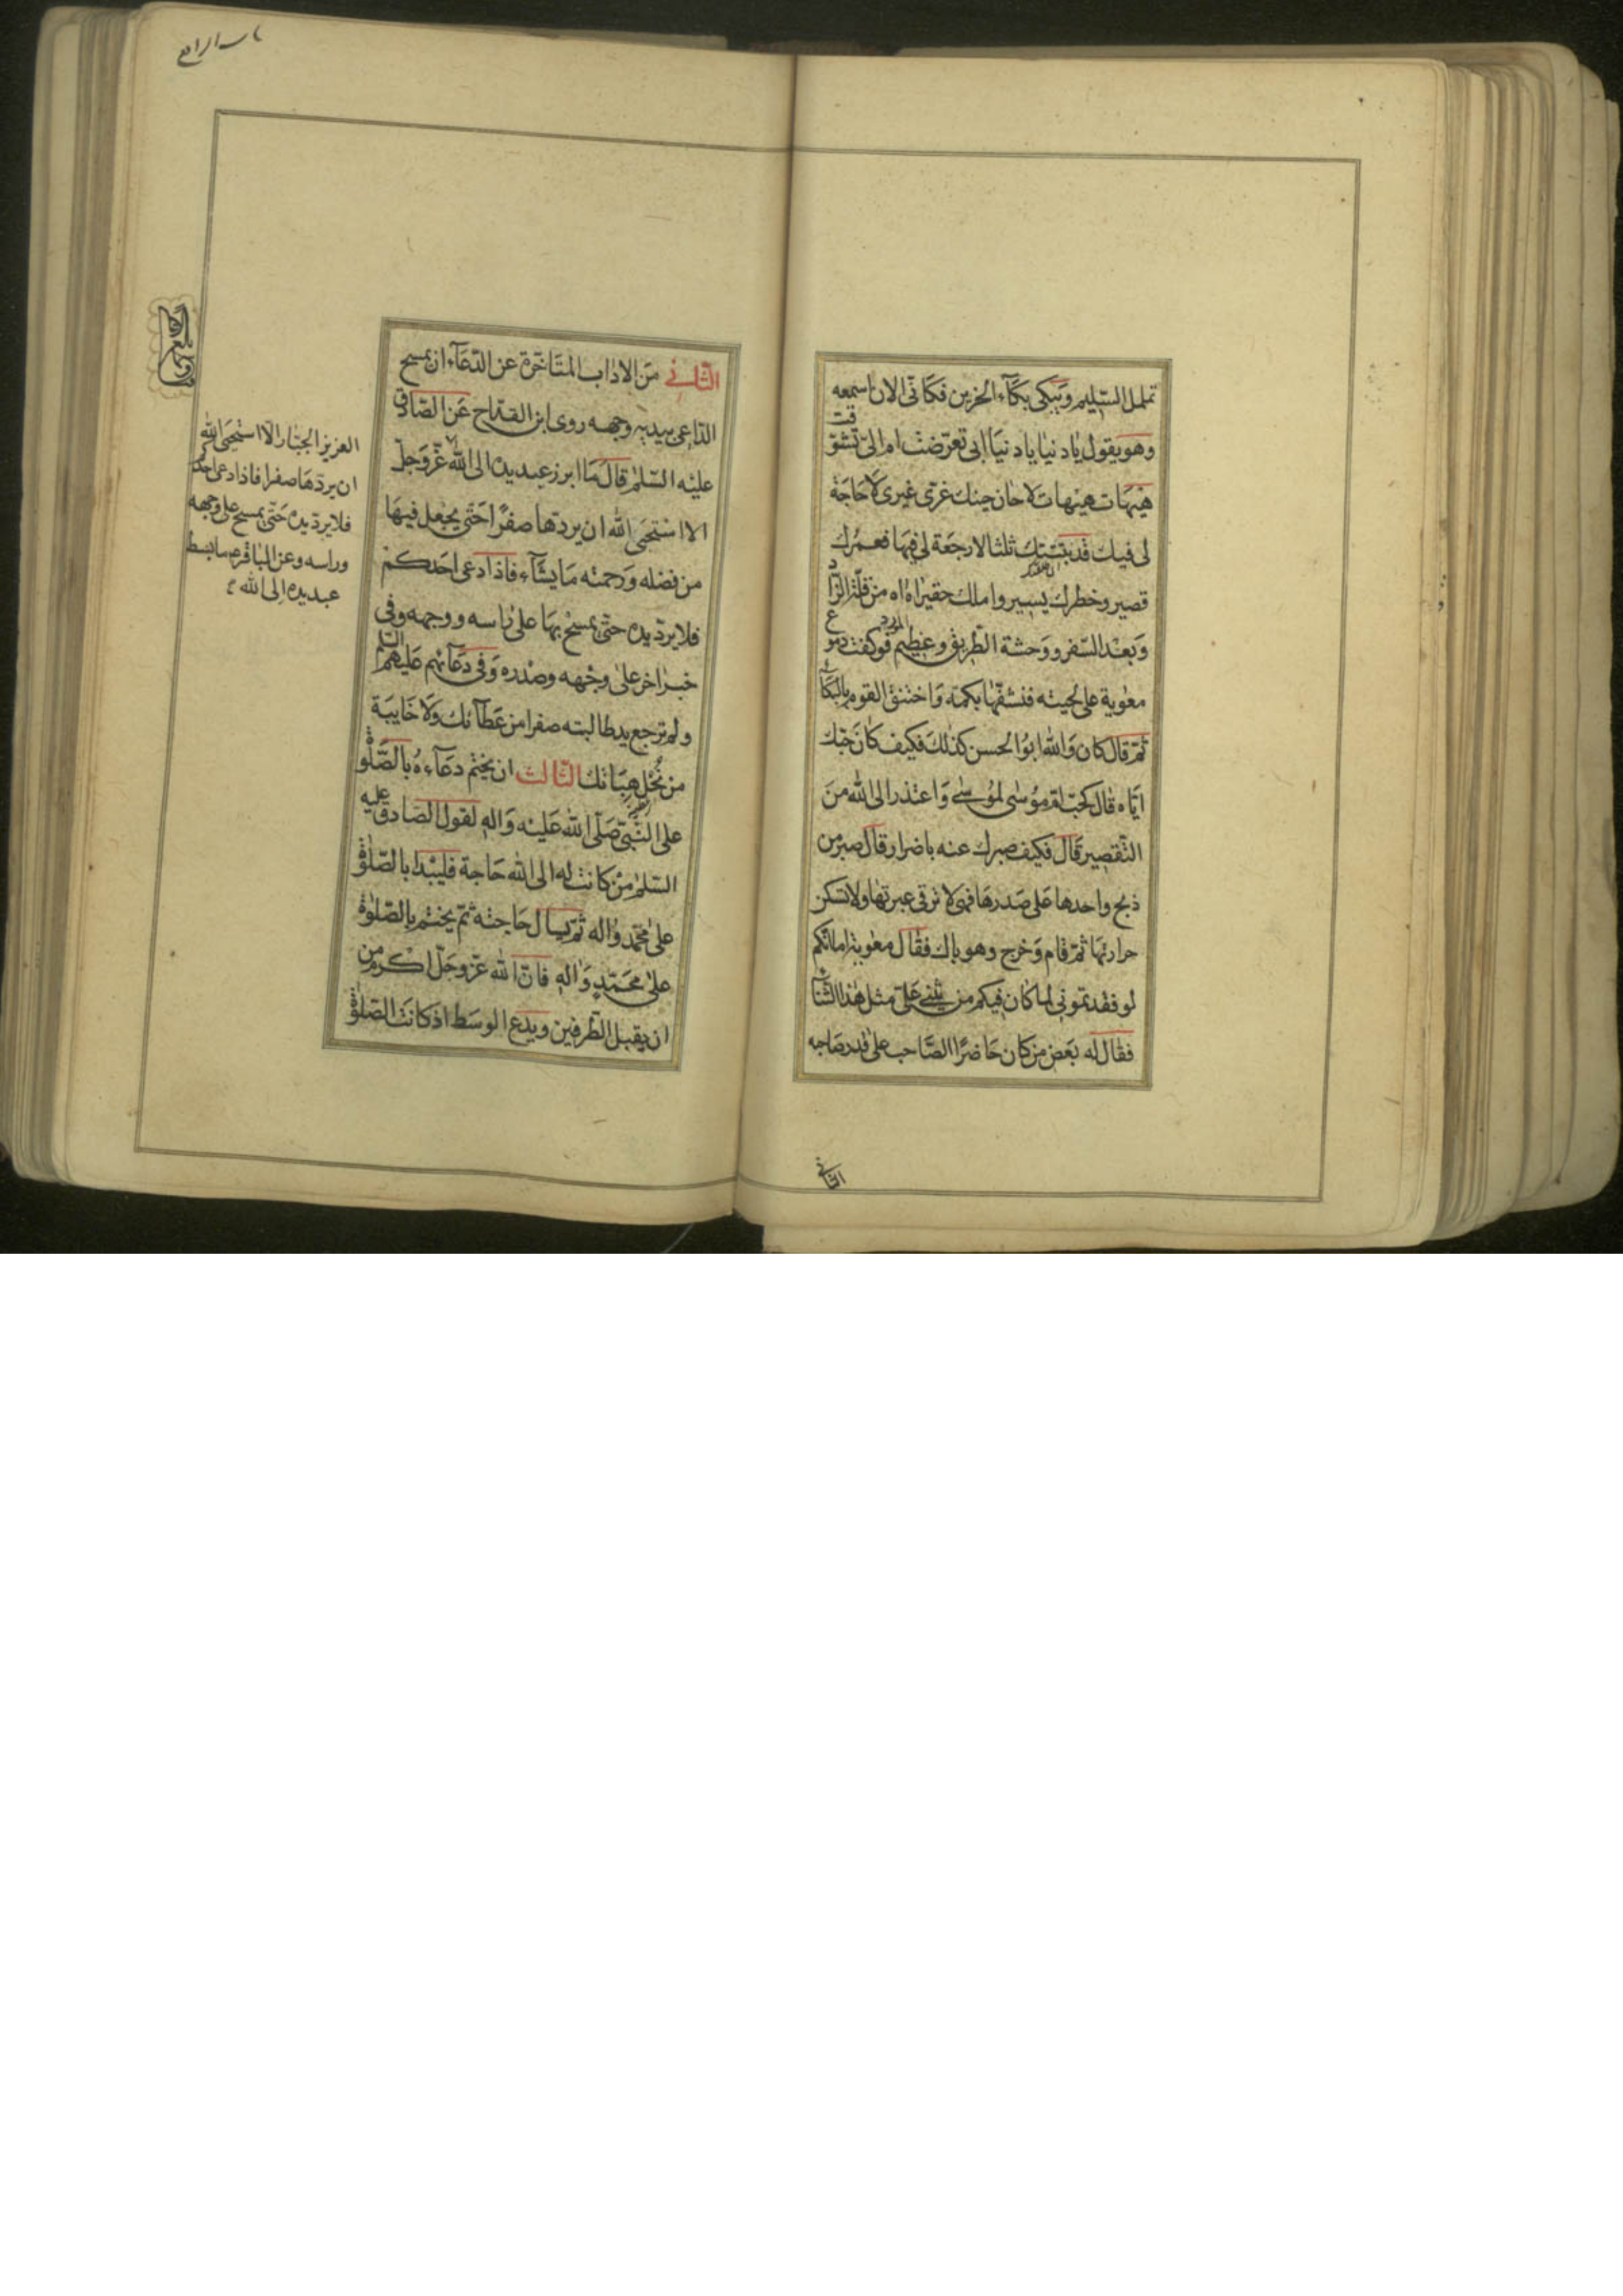 تململ السّليم ويبكى بكآء الحزين فكانّى الان اسمعه
وهو يقول يا دنيا يا دنيا ابى تعرّضت ام الىّ تشوّقت
هيهات هيهات لا حان حينك غرّى غيرى لا حاجة
لى فيك قد بتتتك ثلثا لا رجعة لى فيها فعمرك
قصير وخطرك يسير واملك حقير اه اه من قلّة الزّاد
وبعد السّفر ووحشة الطّريق وعظيم المورد فوكفت دموع
معوية على لحيته فنشفها بكمّه واختنق القوم بالبكآء
ثمّ قال كان والله ابو الحسن كذلك فكيف كان حبّك
ايّاه قال كحبّ امّ موسى لموسى واعتذر الى الله من
التّقصير قال فكيف صبرك عنه يا ضرار قال صبر من
ذبح واحدها على صدرها فهى لا ترقى عبرتها ولا تسكن
حرارتها ثمّ قام وخرج وهو باك فقال معوية اما انّكم
لو فقدتمونى لما كان فيكم من يثنى علىّ مثل هذا الثّنآء
فقال له بعض من كان حاضرا الصّاحب على قدر صاحبه
الثانى
الثّانى من الاداب المتاخّرة عن الدّعآء ان يمسح
الدّاعى بيديه وجهه روى ابن القدّاح عن الصّادق
عليه السّلم قال ما ابرز عبد يده الى الله عزّ وجلّ
الا استحيى الله ان يردّها صفرا حتّى يجعل فيها
من فضله ورحمته ما يشآء فاذا دعى احدكم
فلا يردّ يده حتّى يمسح بها على راسه ووجهه وفى
خبر اخر على وجهه وصدره وفى دعآئهم عليهم السّلم
ولم ترجع يد طالبته صفرا من عطآئك ولا خايبة
من نحل هباتك الثّالث ان يختم دعآءه بالصّلوة
على النّبىّ صلّى الله عليه واله لقول الصّادق عليه
السّلم من كانت له الى الله حاجة فليبدا بالصّلوة
على محمّد واله ثمّ يسال حاجته ثمّ يختم بالصّلوة
على محمّد واله فانّ الله عزّ وجلّ اكرم من
ان يقبل الطّرفين ويدع الوسط اذ كانت الصّلوة
العزيز الجبّار الّا استحيى الله
ان يردّها صفرا فاذا دعى احدكم
فلا يردّ يده حتّى يمسح على وجهه
وراسه وعن الباقر ع ما بسط
عبد يده الى الله
باب الرابع